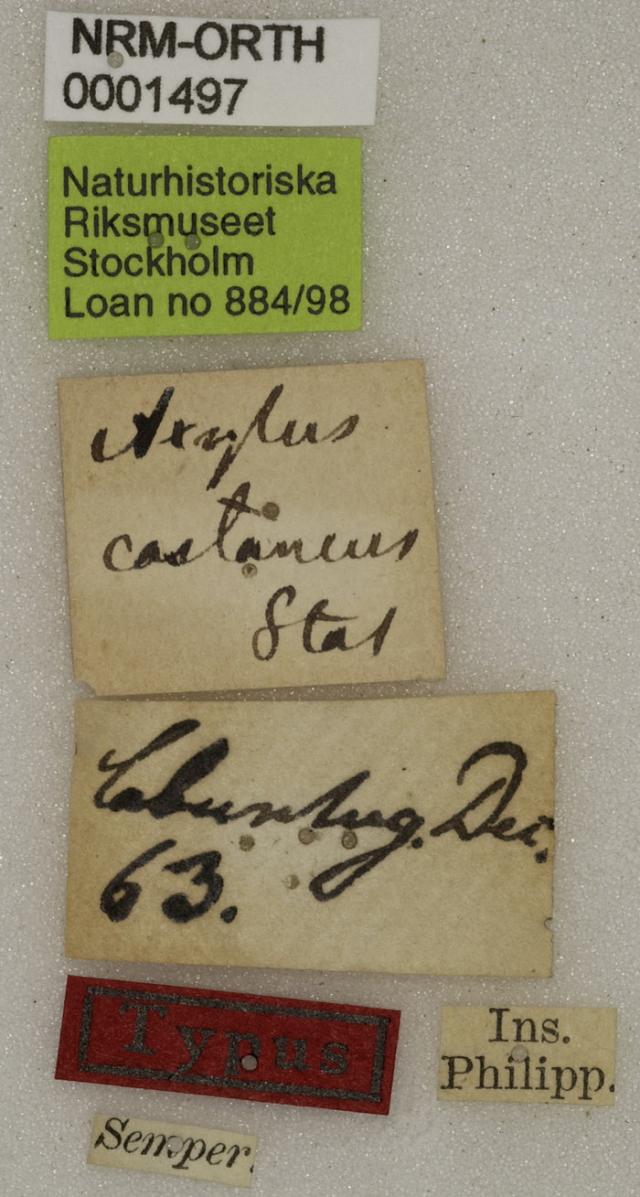 NRM-ORTH
0001497
Naturhistoriska
Riksmuseet
Stockholm
Loan no 884/98
Axylus
castaneus
Stal
Dec.
63.
Typus
Ins.
Philipp.
Semper.